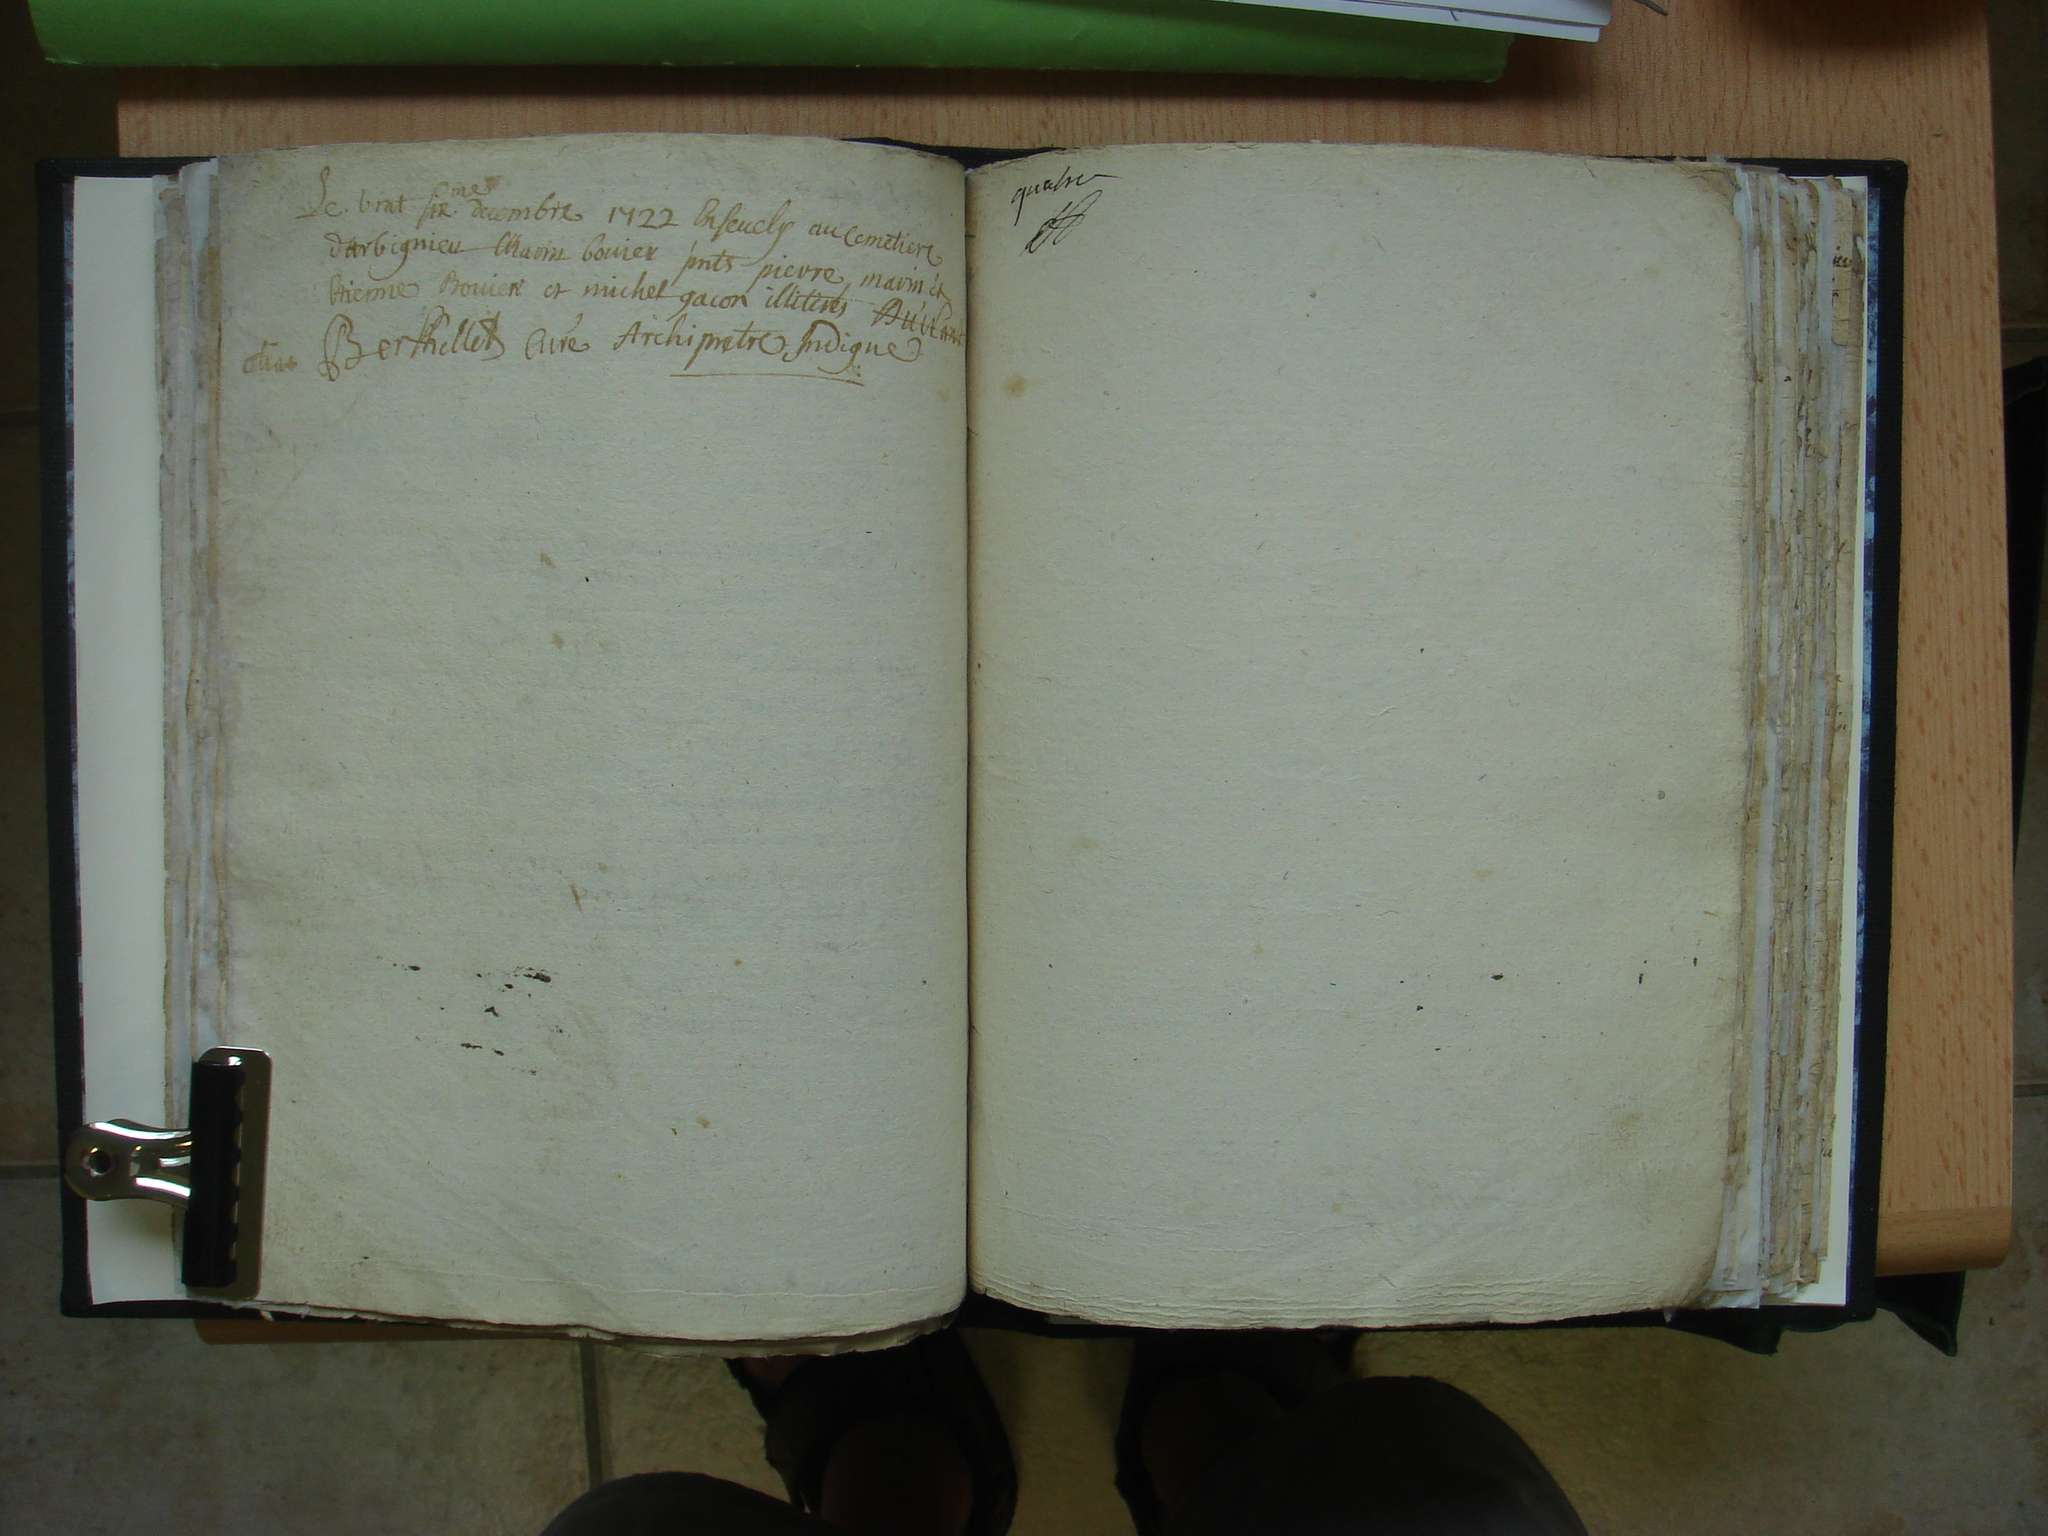 Le vint six.me decembre 1722 Enseuely au Cemetiere
d'arbignieu Marin bovier pnts pierre, marin et
Etienne Bovier et michel gacon illiterés
Berthellet Curé Archipretre Indigne
quatre